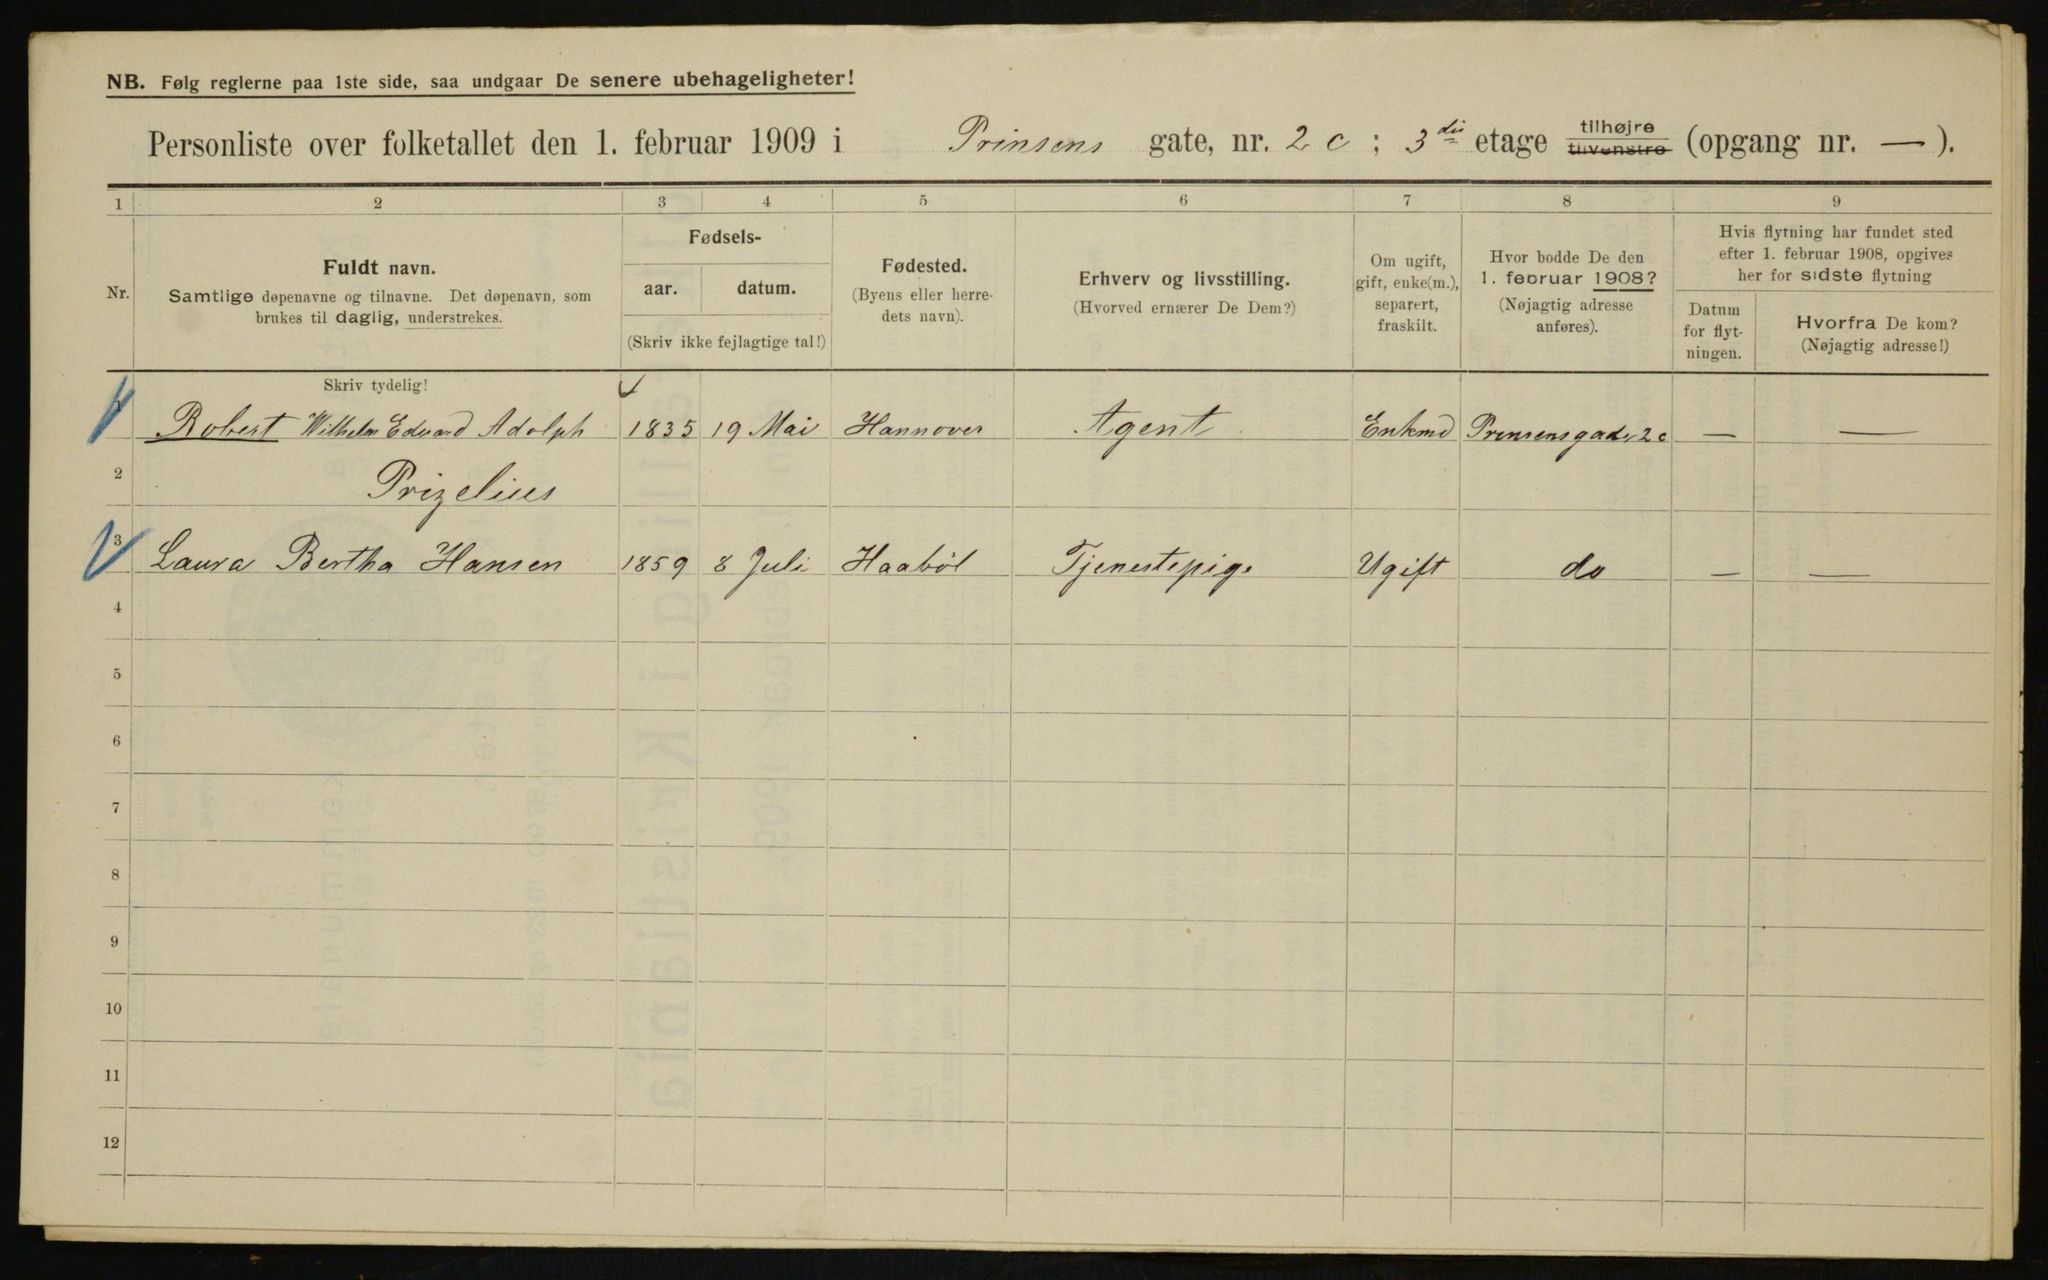 NB. Følg reglerne paa 1ste side, saa undgaar De senere ubehageligheter!
Personliste over folketallet den 1. februar 1909 i Prinsens gate, nr. 2 c ; 3die etage tilhøjre tilvenstre (opgang nr. — ).
1 2 3 4 5 6 7 8 9
Nr.
Fuldt navn.
Samtlige døpenavne og tilnavne. Det døpenavn, som
brukes til daglig, understrekes.
Fødsels-
aar. datum.
(Skriv ikke fejlagtige tal!)
Fødested.
(Byens eller herre-
dets navn).
Erhverv og livsstilling.
(Hvorved ernærer De Dem?)
Om ugift,
gift, enke(m.),
separert,
fraskilt.
Hvor bodde De den
1. februar 1908?
(Nøjagtig adresse
anføres).
Hvis flytning har fundet sted
efter 1. februar 1908, opgives
her for sidste flytning
Datum
for flyt-
ningen.
Hvorfra De kom?
(Nøjagtig adresse!)
Skriv tydelig!
Robert Wilhelm Edvard Adolph 1835 19 Mai Hannover Agent Enkmd Prinsensgade 2 c — —
2 Prizelius
3 Laura Bertha Hansen 1859 8 Juli Haabøl Tjenestepige Ugift do — —
4
5
6
7
8
9
10
11
12